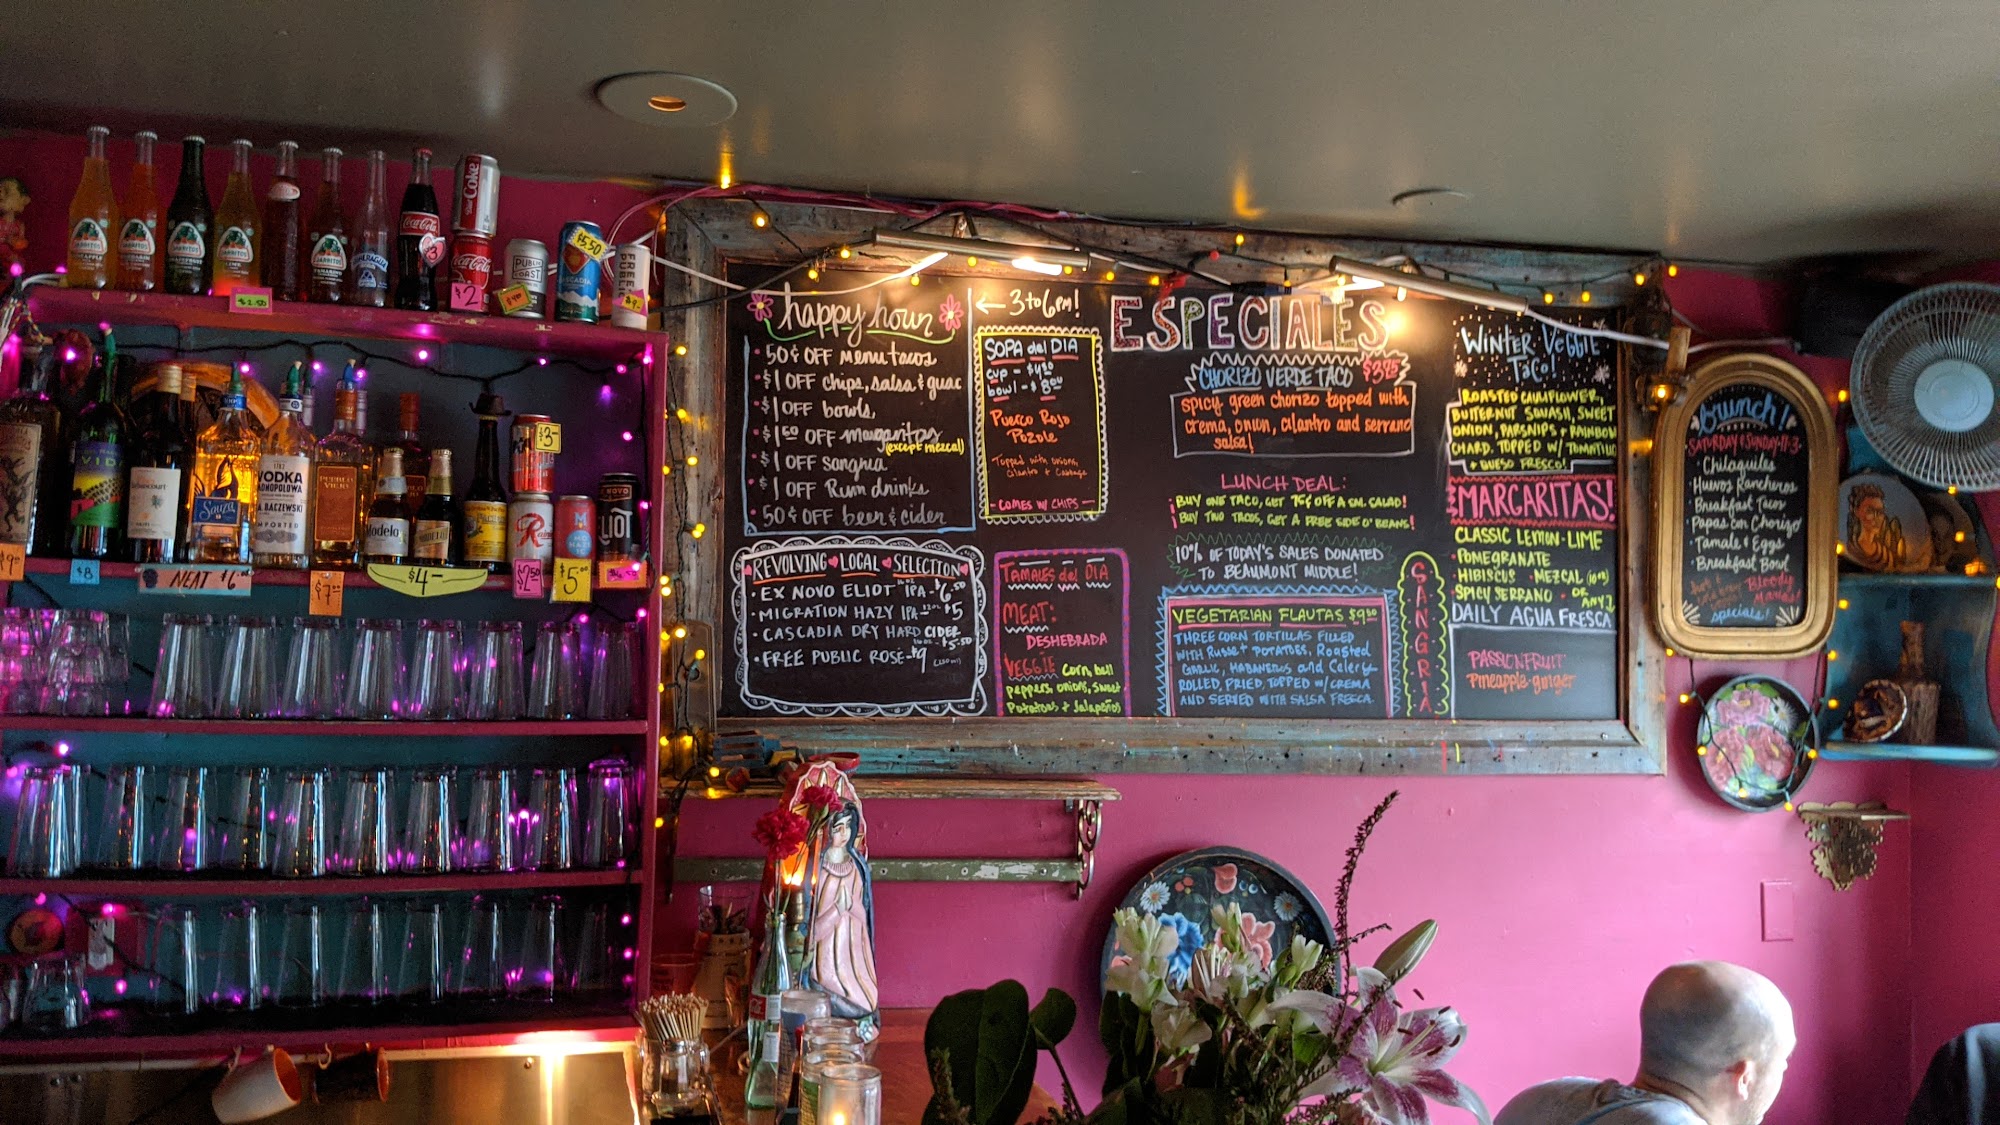 happy hour
← 3 to 6pm!
50¢ OFF menu tacos
$1 OFF chips, salsa & guac
$1 OFF bowls
$1 50 OFF margaritas
(except mezcal)
$1 OFF sangria
$1 OFF Rum drinks
50¢ OFF beer & cider
REVOLVING LOCAL SELECTION
EX NOVO ELIOT IPA - $6.50
MIGRATION HAZY IPA $5
CASCADIA DRY HARD CIDER
$5.50
FREE PUBLIC ROSÉ - $9
SOPA del DIA
cup - $4.50
bowl - $8.00
Puerco Rojo
Pozole
Topped with onions,
Cilantro + Cabbage
- COMES W/ CHIPS -
TAMALES del DIA
MEAT:
DESHEBRADA
VEGGIE Corn, bell
peppers, onions, sweet
Potatoes + Jalapeños
ESPECIALES
CHORIZO VERDE TACO $3.75
spicy green chorizo topped with
crema, onion, cilantro and serrano
salsa!
LUNCH DEAL:
BUY ONE TACO, GET 75¢ OFF A SM. SALAD!
BUY TWO TACOS, GET A FREE SIDE O' BEANS!
10% OF TODAY'S SALES DONATED
TO BEAUMONT MIDDLE!
VEGETARIAN FLAUTAS $9.50
THREE CORN TORTILLAS FILLED
WITH Russet POTATOES, Roasted
GARLIC, HABANEROS and Celery
ROLLED, FRIED, TOPPED W/ CREMA
AND SERVED WITH SALSA FRESCA.
SANGRIA
WINTER VEGGIE
TACO!
ROASTED CAULIFLOWER,
BUTTERNUT SQUASH, SWEET
ONION, PARSNIPS + RAINBOW
CHARD. TOPPED W/ TOMATILLO
+ QUESO FRESCO!
MARGARITAS!
CLASSIC LEMON-LIME
POMEGRANATE
HIBISCUS · MEZCAL
SPICY SERRANO · OR
ANY
DAILY AGUA FRESCA
PASSIONFRUIT
Pineapple-ginger
Brunch!
SATURDAY & SUNDAY 11-3
Chilaquiles
Huevos Rancheros
Breakfast Tacos
Papas con Chorizo
Tamale & Eggs
Breakfast Bowl
Bloody
Marias!
specials!
JARRITOS
JARRITOS
JARRITOS
JARRITOS
JARRITOS
Coca-Cola
$3
Diet Coke
Coca-Cola
$2
$2.50
PUBLIC
COAST
$5.50
CASCADIA
FREE
PUBLIC
$9
VIDA
Sauza
VODKA
MONOPOLOWA
J.A. BACZEWSKI
IMPORTED
PUEBLO
VIEJO
Modelo
$3-
ELIOT
$9
$8
NEAT $6
$7
$4-
$2.50
$5
$6.50